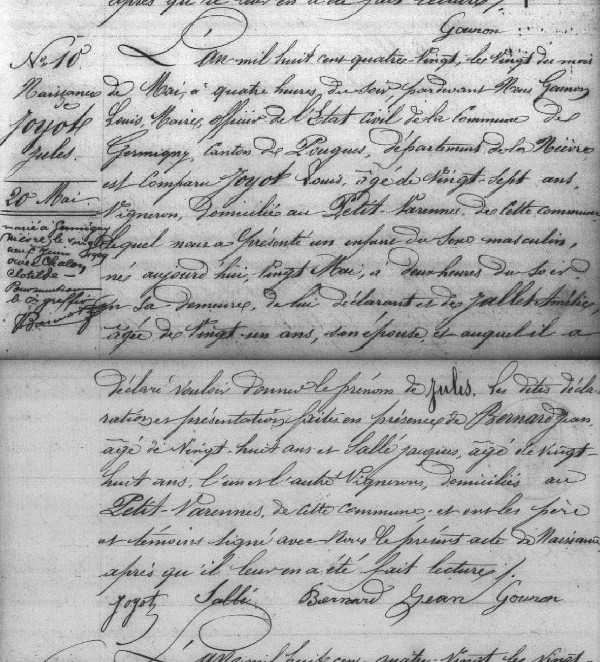 après qu'il leur en a été fait lecture /.
Gouron
N° 10
Naissance
de
Joyot
Jules.
20 Mai.
marié à Germigny
Nièvre le vingt
avec Chalon
Clotilde
Pour mention
le greffier
L'an mil huit cent quatre-vingt, le vingt du mois
de Mai, à quatre heures, du soir, pardevant Nous Gouron
Louis, Maire, officier de l'Etat civil de la commune de
Germigny, canton de Pougues, département de la Nièvre
est comparu Joyot Louis, âgé de vingt-sept ans,
Vigneron, domicilié au Petit-Varennes, de cette commune
lequel nous a présenté un enfant du sexe masculin,
né aujourd'hui, vingt Mai, à deux heures du soir
en sa demeure, de lui déclarant et de Jallet Amélie,
âgée de vingt-un ans, son épouse, et auquel il a
déclaré vouloir donner le prénom de Jules. Les dites décla-
ration et présentation faites en présence de Bernard Jean,
âgé de vingt-huit ans et Sallé Jacques, âgé de vingt-
huit ans, l'un et l'autre Vignerons, domiciliés au
Petit-Varennes, de cette commune, et ont les père
et témoins signé avec Nous le présent acte de Naissance,
après qu'il leur en a été fait lecture /.
Joyot Sallé Bernard Jean Gouron
L'an mil huit cent quatre-vingt le vingt-